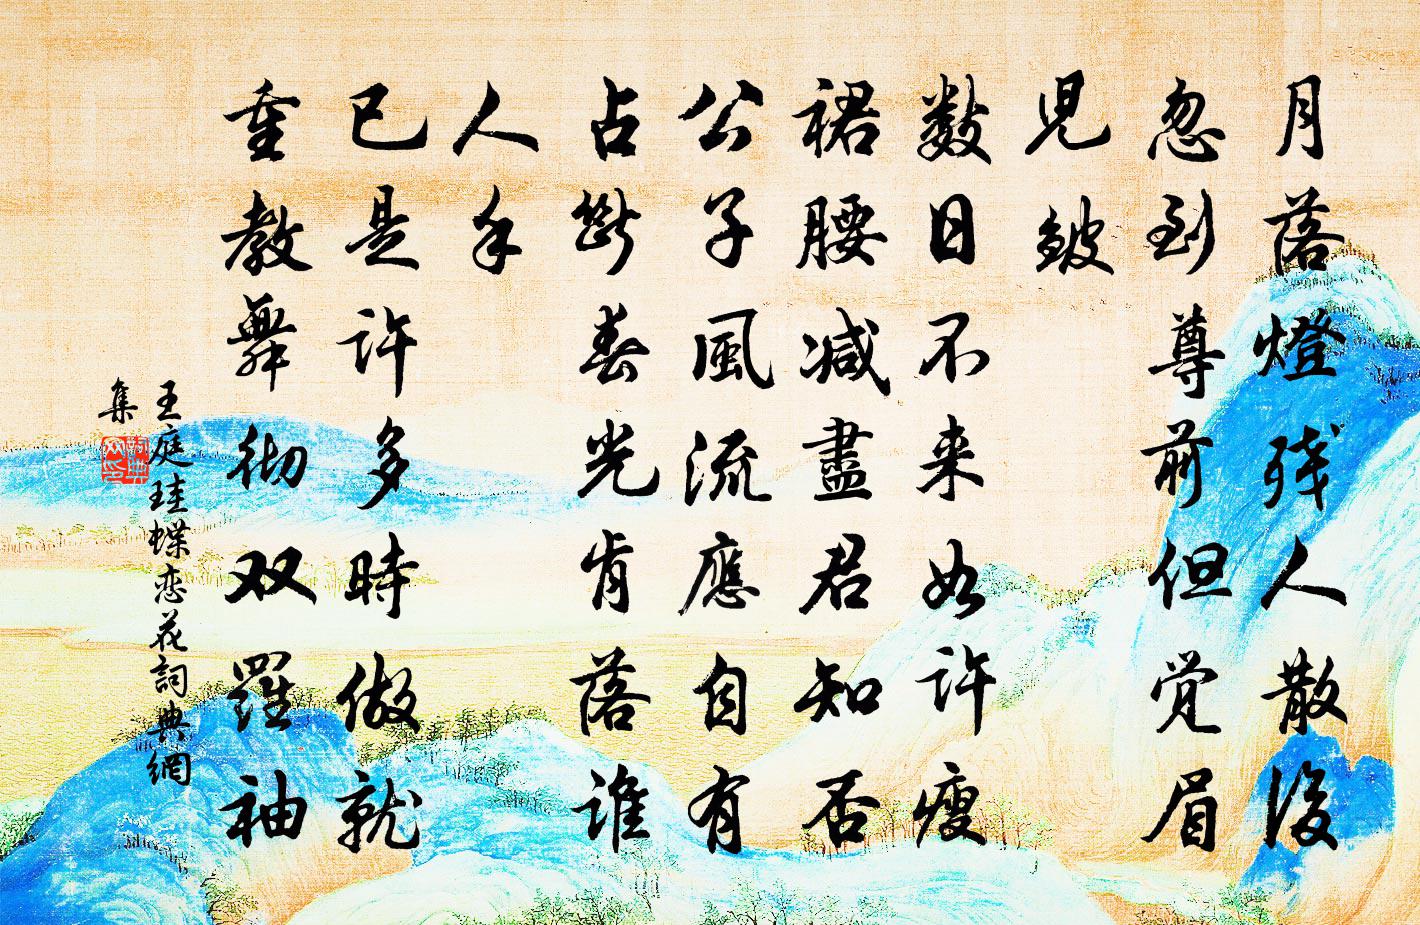 月落燈残人散後
忽到尊前但觉眉
児皴
数日不来如许瘦
裙腰减盡君知否
公子風流應自有
占断春光肯落谁
人手
已是许多時做就
重教舞彻双羅袖
王庭珪蝶恋花詞典網
集